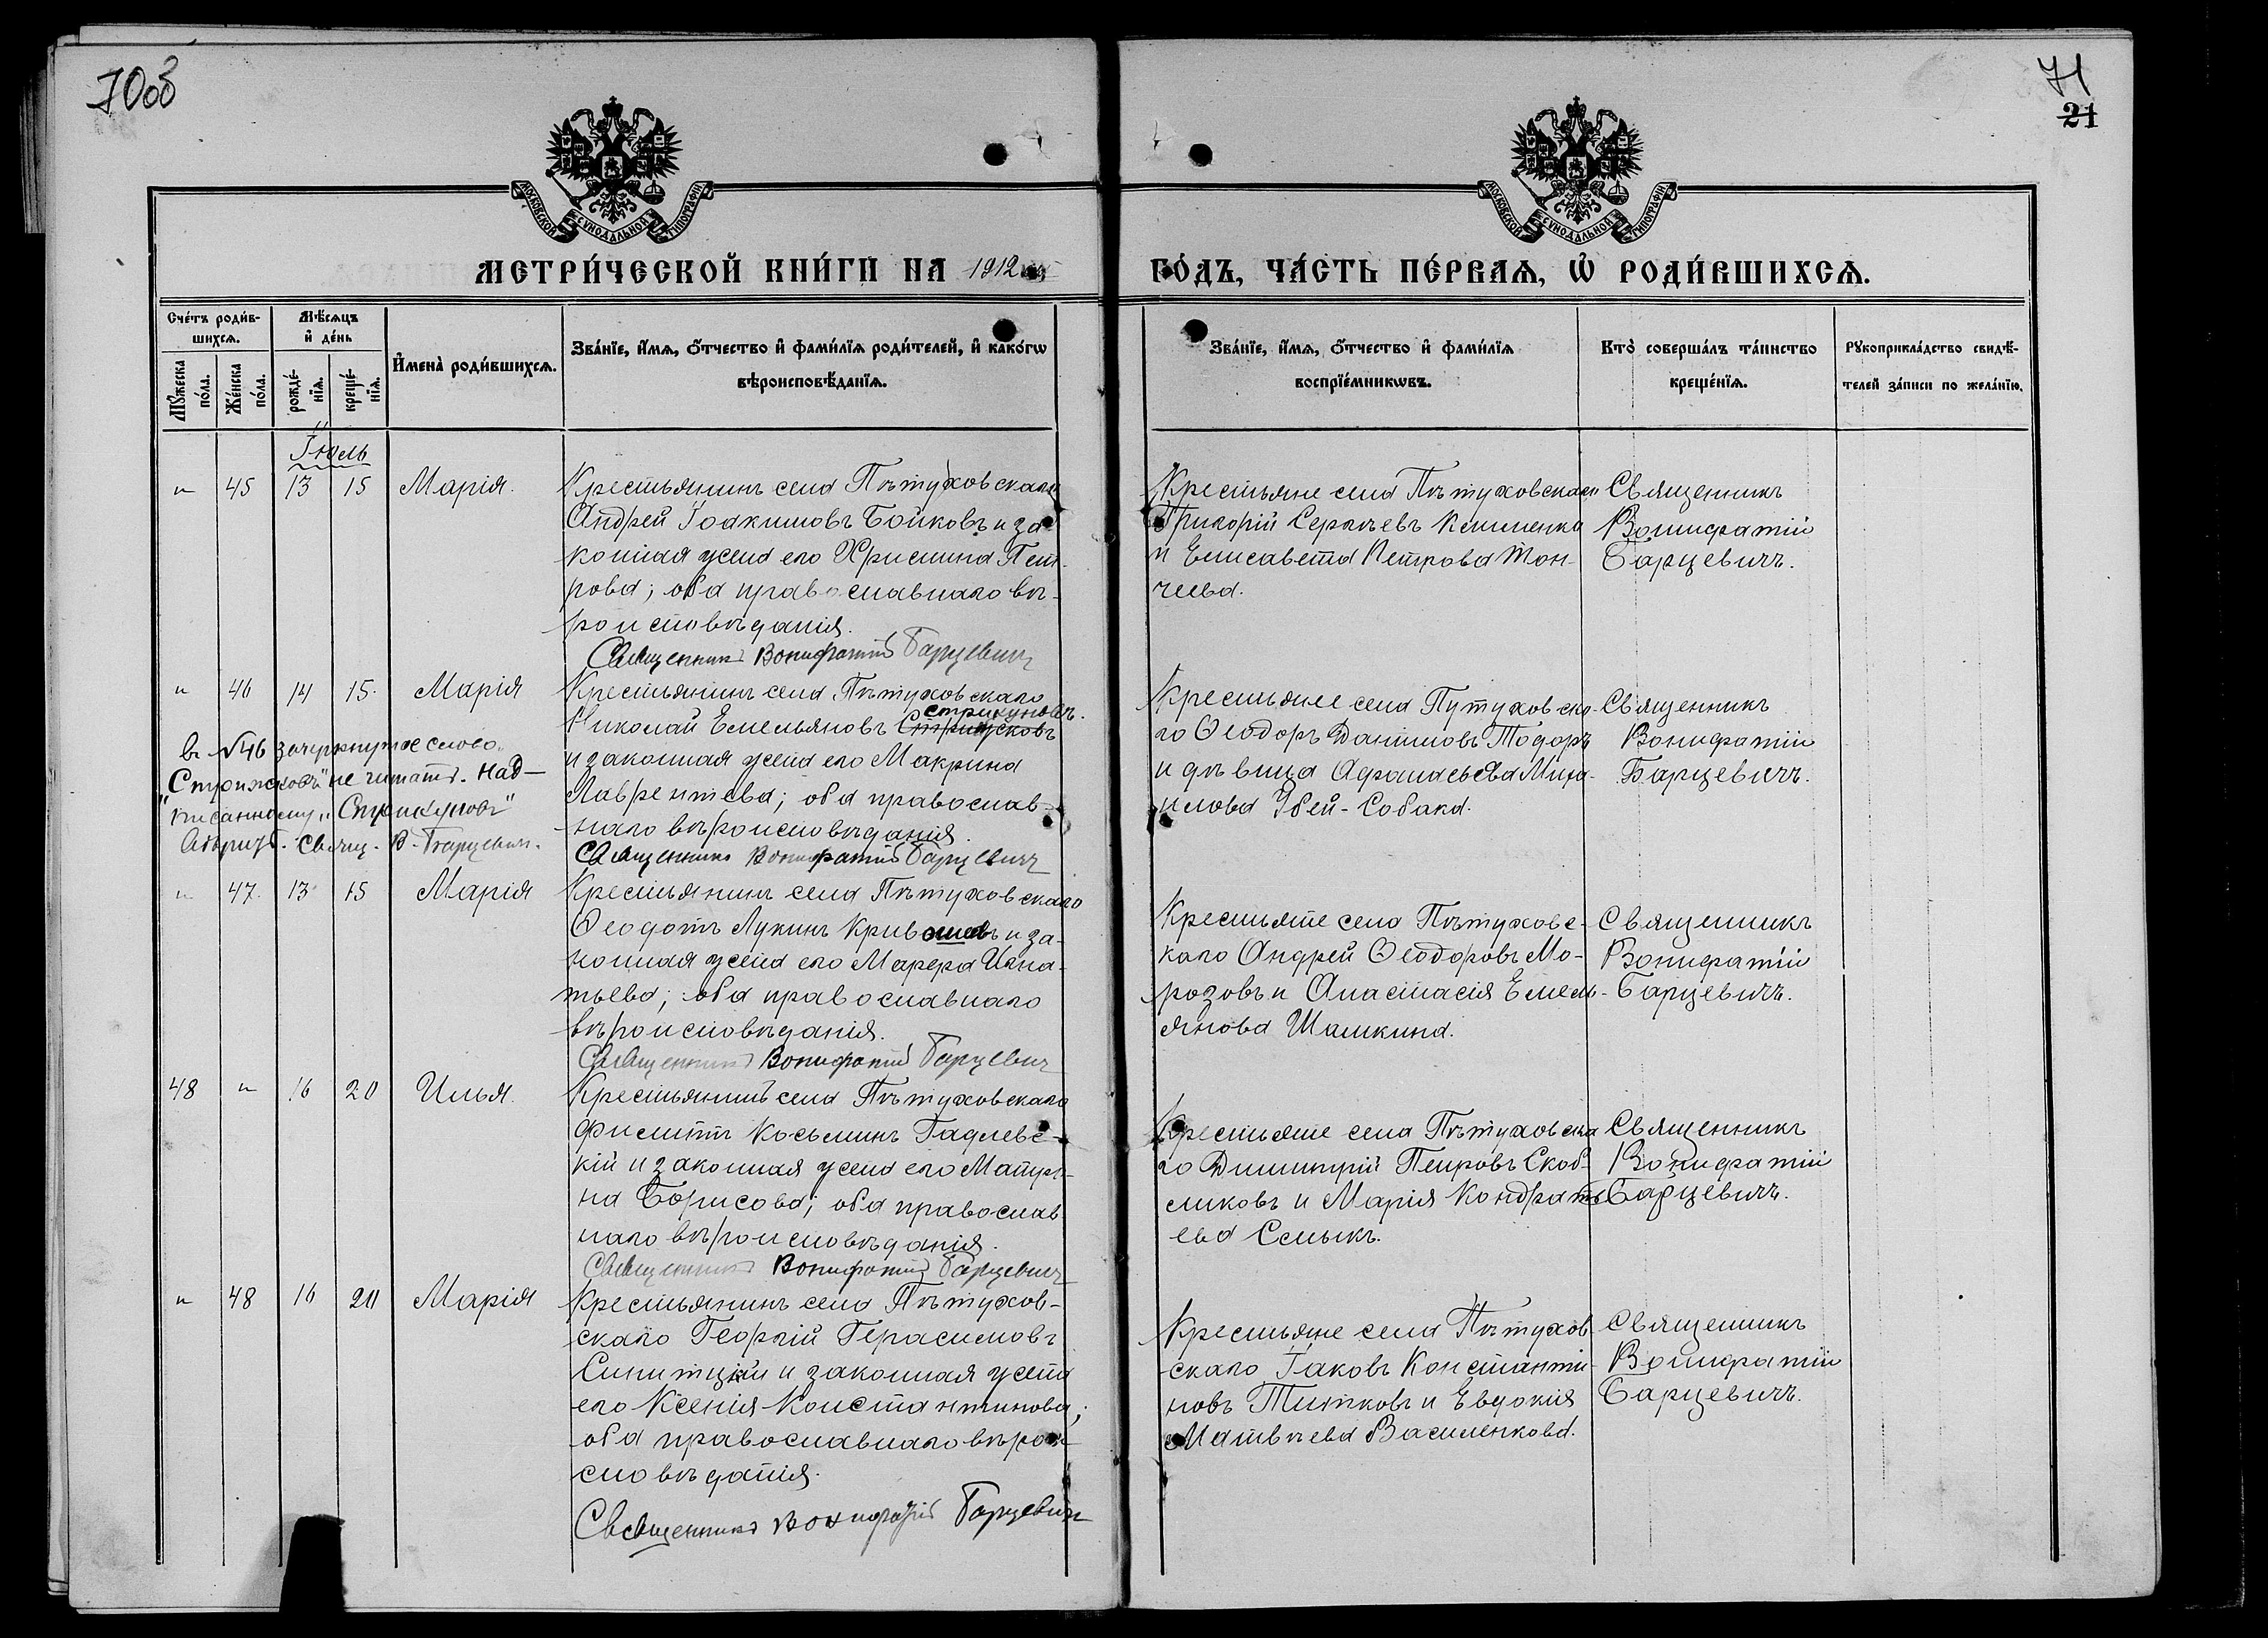 70об
71
21
МОСКОВСКОЙ СУНОДАЛЬНОЙ ТИПОГРАФІИ
МОСКОВСКОЙ СУНОДАЛЬНОЙ ТИПОГРАФІИ
МЕТРИ́ЧЕСКОЙ КНИ́ГИ НА 1912
ГО́ДЪ, ЧА́СТЬ ПЕ́РВАѦ, Ѡ РОДИ́ВШИХСѦ.
Сче́тъ роди́в-
шихсѧ.
Мꙋ́жеска по́ла.
Же́нска по́ла.
Мѣ́сѧцъ
и҆ де́нь
рожде́-
нїѧ.
креще́-
нїѧ.
И҆мена̀ роди́вшихсѧ.
Зва́нїе, и҆́мѧ, ѻ҆́тчество и҆ фами́лїѧ роди́телей, и҆ како́гѡ
вѣроисповѣ́данїѧ.
Зва́нїе, и҆́мѧ, ѻ҆́тчество и҆ фами́лїѧ
воспрїе́мникѡвъ.
Кто̀ соверша́лъ та́инство
креще́нїѧ.
Рꙋкоприкла́дство свидѣ́-
телей за́писи по жела́нїю.
Іюль
" 45 13 15 Марія.
Крестьянинъ села Пѣтуховскаго
Андрей Іоакимовъ Бойковъ и за-
конная жена его Христина Пет-
рова; оба православнаго вѣ-
роисповѣданія.
Священникъ Вонифатій Барцевичъ
Крестьяне села Пѣтуховскаго
Григорій Сергѣевъ Клименко
и Елисавета Петрова Тон-
чева.
Священникъ
Вонифатій
Барцевичъ.
" 46 14 15. Марія
Крестьянинъ села Пѣтуховскаго
Стрикуновъ.
Николай Емельяновъ Стрижсковъ
и законная жена его Макрина
Лаврентева; оба православ-
наго вѣроисповѣданія.
Священникъ Вонифатій Барцевичъ
в №46 зачеркнутое слово
"Стрижсковъ" не читать. Над-
писанному "Стрикуновъ"
вѣрить. Свящ. В. Барцевичъ.
Крестьяне села Путуховска-
го Ѳеодоръ Даниловъ Тодоръ
и дѣвица Афанасьева Миха-
илова Убей-Собака.
Священникъ
Вонифатій
Барцевичъ.
" 47. 13 15 Марія
Крестьянинъ села Пѣтуховскаго
Ѳеодотъ Лукинъ Кривошеевъ и за-
конная жена его Марфа Игна-
тьева; оба православнаго
вѣроисповѣданія.
Священникъ Вонифатій Барцевичъ
Крестьяне села Пѣтуховс-
каго Андрей Ѳеодоровъ Мо-
розовъ и Анастасія Емель-
янова Шашкина.
Священникъ
Вонифатій
Барцевичъ.
48 " 16 20 Илья.
Крестьянинъ села Пѣтуховскаго
Филиппъ Косьминъ Гадлевс-
кій и законная жена его Матре-
на Борисова; оба православ
наго вѣроисповѣданія.
Священникъ Вонифатій Барцевичъ
Крестьяне села Пѣтуховска
го Димитрій Петровъ Скоб-
ликовъ и Марія Кондрать
ева Семыкъ.
Священникъ
Вонифатій
Барцевичъ.
" 48 16 20 Марія
Крестьянинъ села Пѣтухов-
скаго Георгій Герасимовъ
Синитцкій и законная жена
его Ксенія Константинова;
оба православнаго вѣрои-
сповѣданія.
Священникъ Вонифатій Барцевичъ
Крестьяне села Пѣтухов
скаго Іаковъ Константи-
новъ Титковъ и Евдокія
Матвѣева Василенкова.
Священникъ
Вонифатій
Барцевичъ.